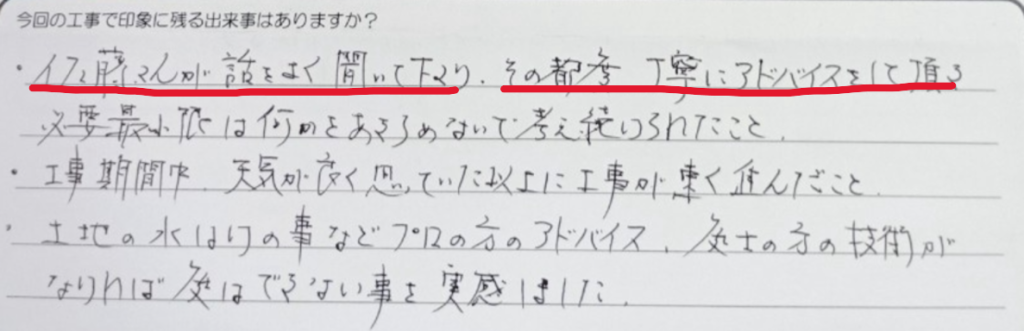 今回の工事で印象に残る出来事はありますか？
・佐藤さんが話をよく聞いて下さり、その都度 丁寧にアドバイスをして頂き
必要最小限は何かをあきらめないで考え続けられたこと。
・工事期間中、天気が良く思っていた以上に工事が速く進んだこと。
・土地の水はけの事などプロの方のアドバイス、庭士の方の技術が
なければ庭はできない事を実感しました。